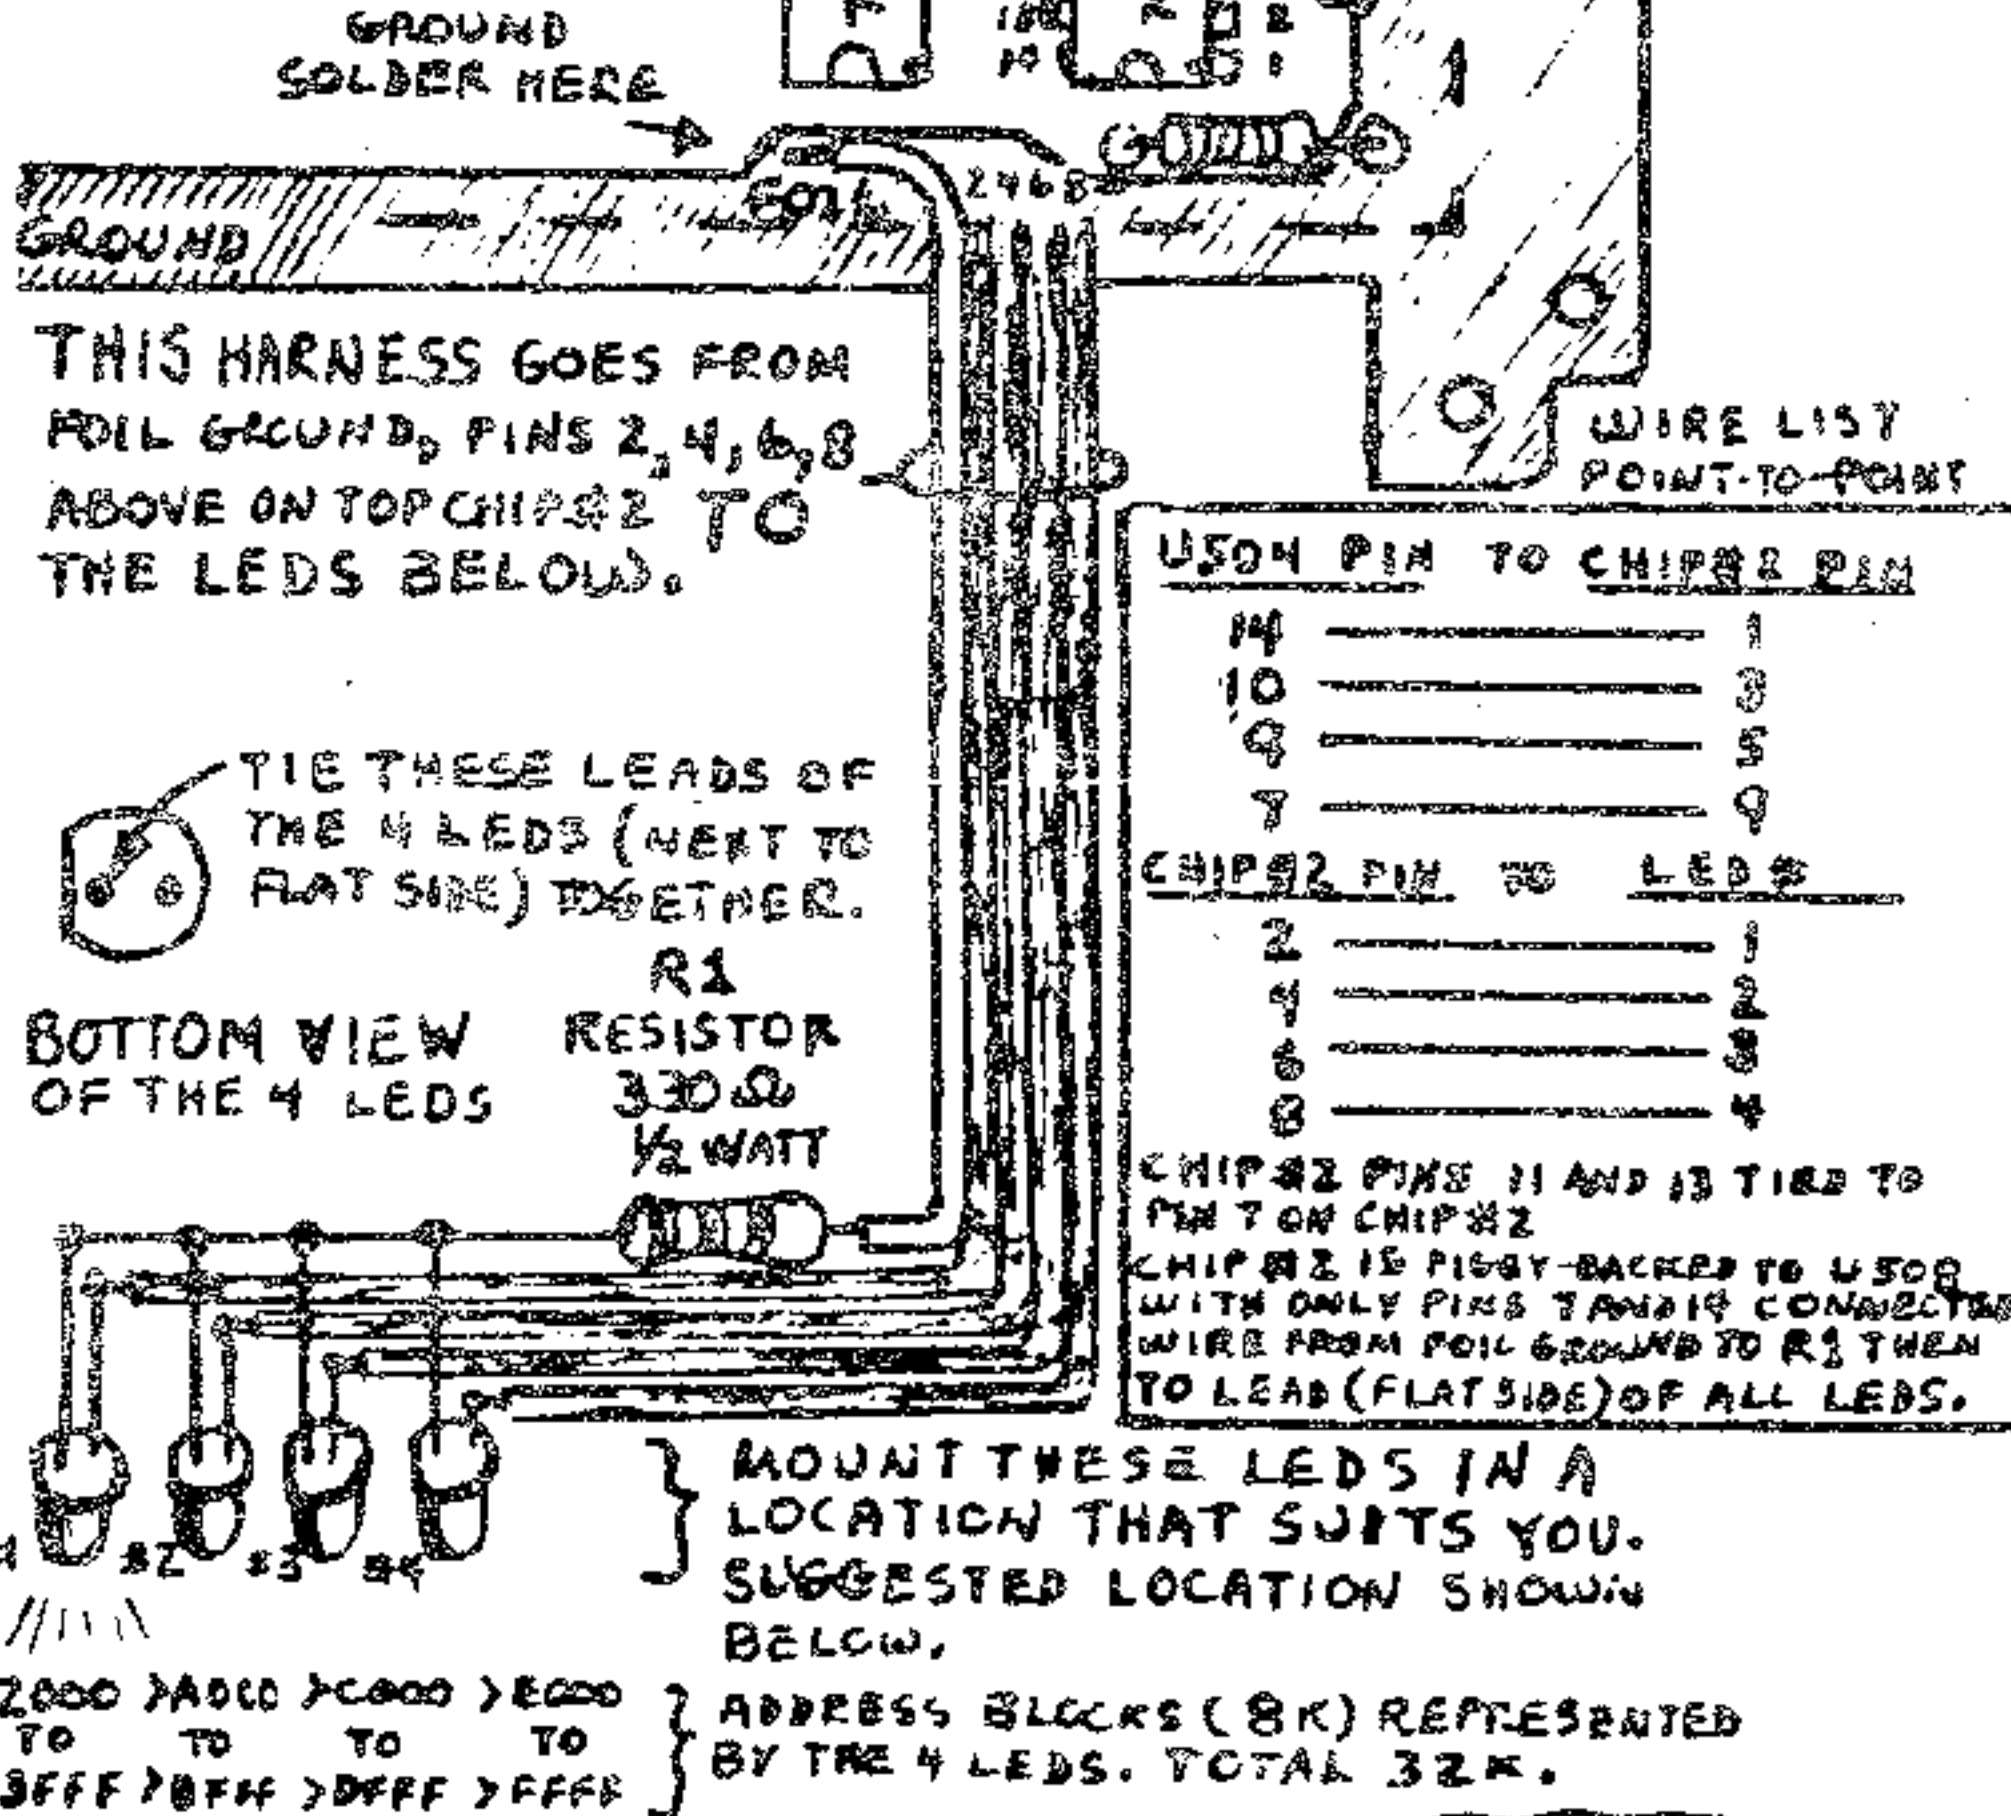 GROUND
SOLDER HERE
2 4 6 8
GROUND
THIS HARNESS GOES FROM
FOIL GROUND, PINS 2, 4, 6, 8
ABOVE ON TOP CHIP#2 TO
THE LEDS BELOW.
WIRE LIST
POINT-TO-POINT
U504 PIN TO CHIP#2 PIN
14 1
10 3
9 5
7 9
CHIP#2 PIN TO LED#
2 1
4 2
6 3
8 4
CHIP#2 PINS 11 AND 13 TIED TO
PIN 7 ON CHIP#2
CHIP#2 IS PIGGY-BACKED TO U508
WITH ONLY PINS 7 AND 14 CONNECTED
WIRE FROM FOIL GROUND TO R1 THEN
TO LEAD (FLAT SIDE) OF ALL LEDS.
TIE THESE LEADS OF
THE 4 LEDS (NEXT TO
FLAT SIDE) TOGETHER.
BOTTOM VIEW
OF THE 4 LEDS
R1
RESISTOR
330 Ω
1/2 WATT
#2 #3 #4
MOUNT THESE LEDS IN A
LOCATION THAT SUITS YOU.
SUGGESTED LOCATION SHOWN
BELOW.
2000 >A000 >C000 >E000
TO TO TO TO
3FFF >BFFF >DFFF >FFFF
ADDRESS BLOCKS (8K) REPRESENTED
BY THE 4 LEDS. TOTAL 32K.